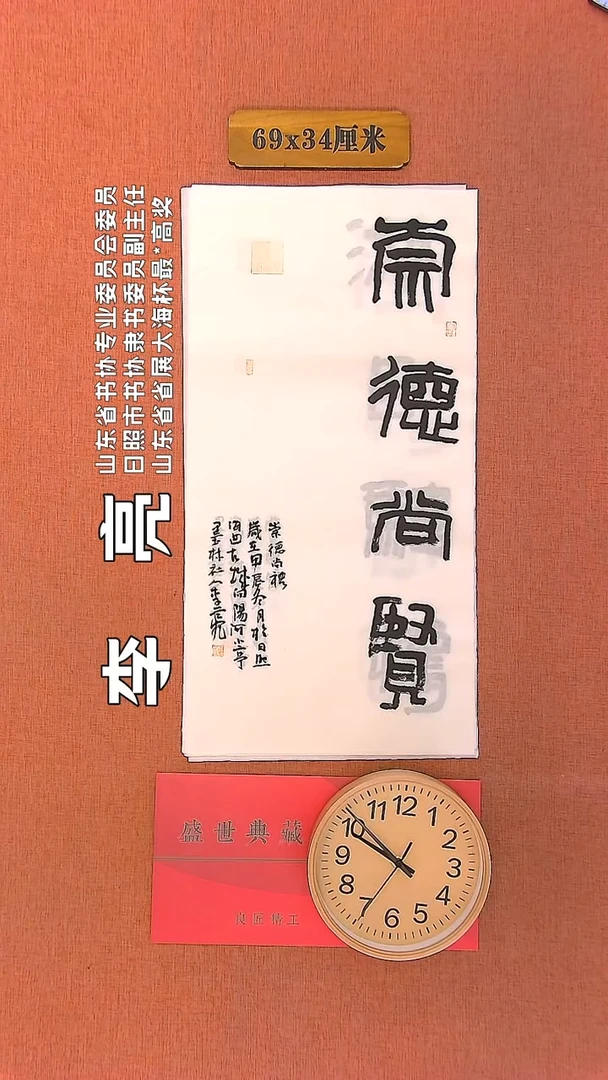 69x34厘米
崇德尚賢
崇德尚禮
歲在甲辰冬月於日照
海曲古城向陽河上亭
墨林社人李亮
李亮
山东省书协专业委员会委员
日照市书协隶书委员副主任
山东省省展大海杯最*高奖
盛世典藏
良匠精工
12
1
2
3
4
5
6
7
8
9
10
11